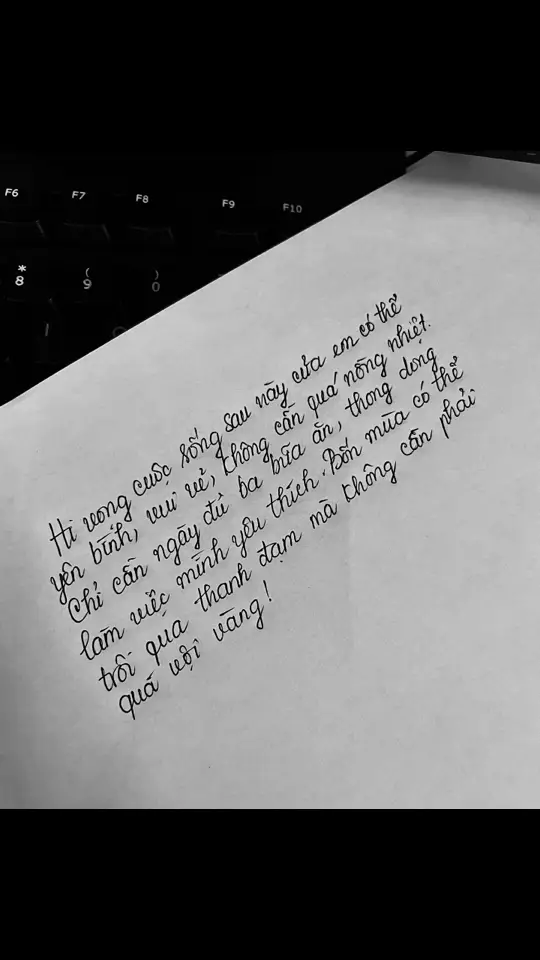 F6 F7 F8 F9 F10
* ( )
8 9 0
Hi vọng cuộc sống sau này của em có thể
yên bình, vui vẻ, không cần quá nồng nhiệt.
Chỉ cần ngày đủ ba bữa ăn, thong dong
làm việc mình yêu thích. Bốn mùa có thể
trôi qua thanh đạm mà không cần phải
quá vội vàng!